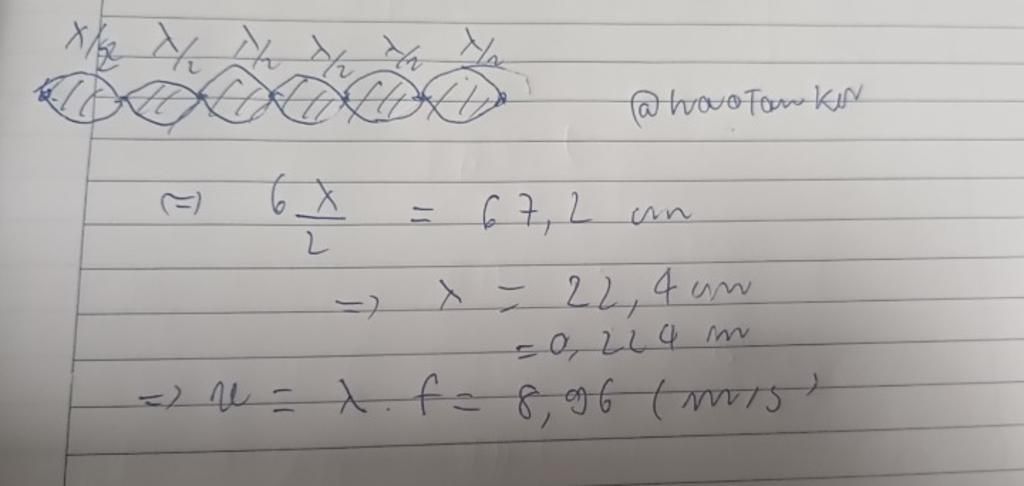 λ/2 λ/2 λ/2 λ/2 λ/2 λ/2
=> 6 λ/2 = 67,2 cm
=> λ = 22,4 cm
= 0,224 m
=> v = λ . f = 8,96 (m/s)